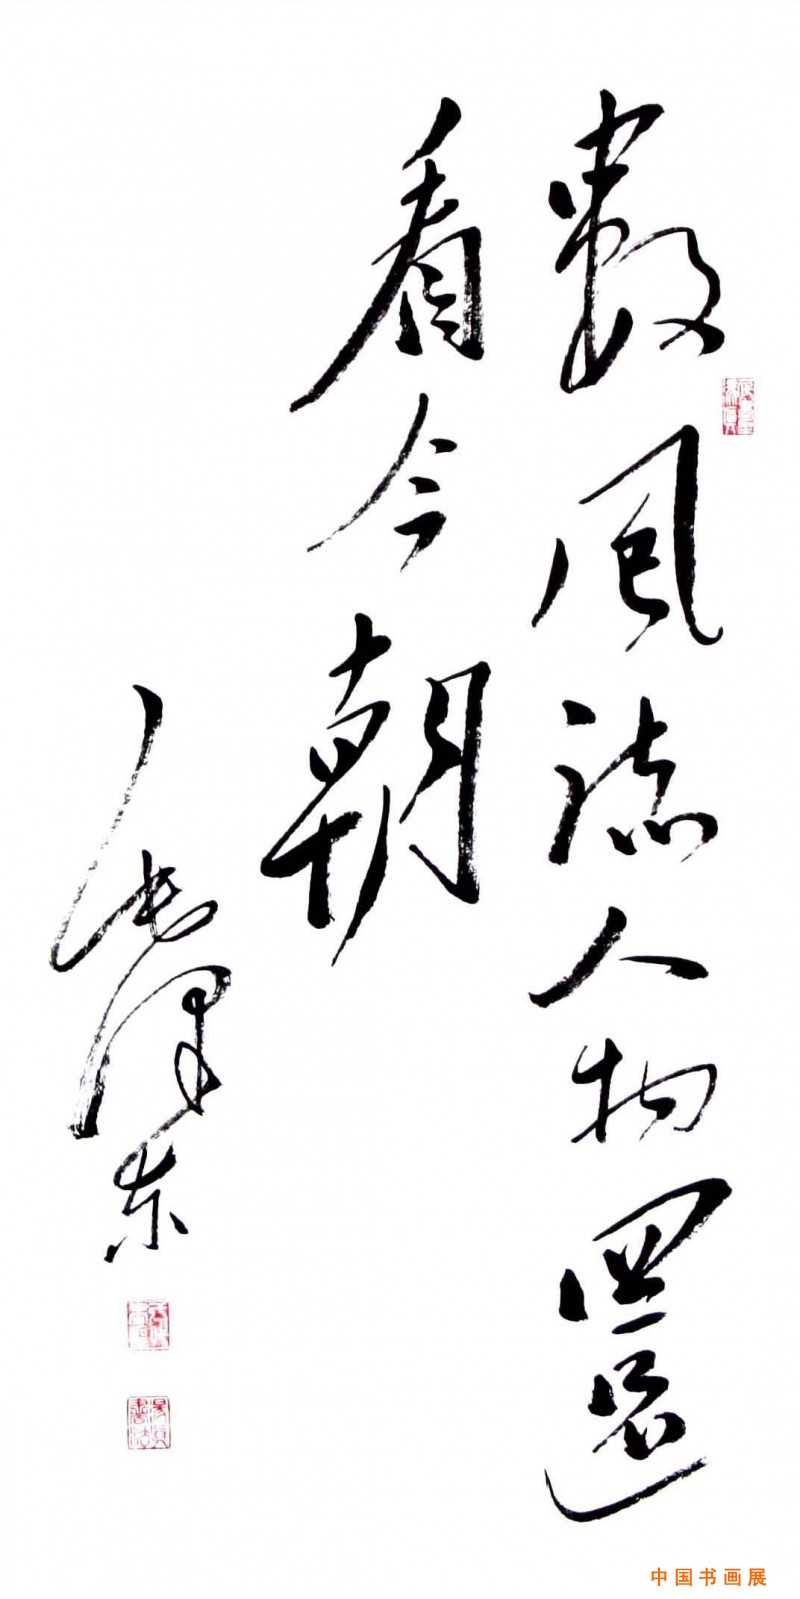 數風流人物還
看今朝
毛泽东
中国书画展